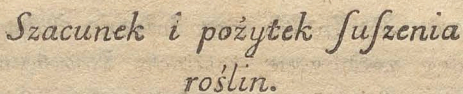 Szacunek i pożytek ſuſzenia
roślin.